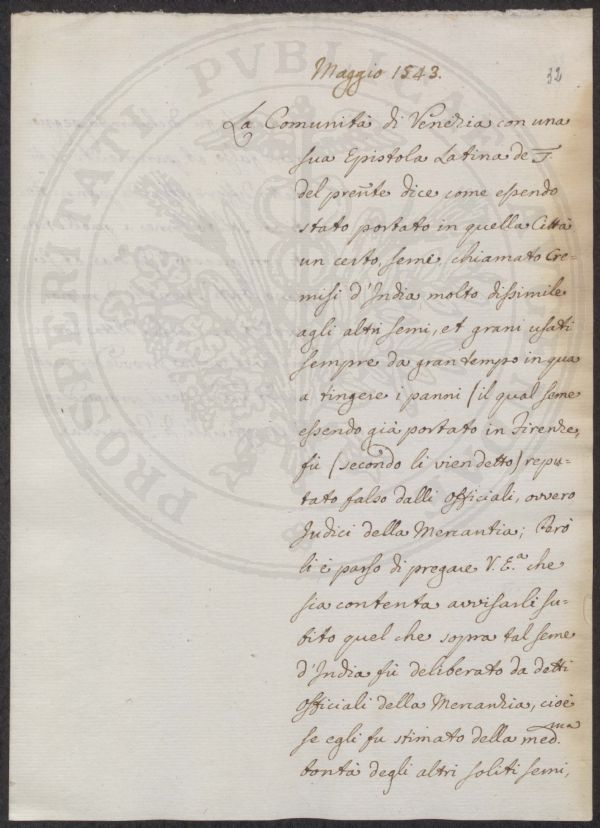 Maggio 1543.
32
La Comunità di Venezia con una
sua Epistola Latina de
del prẽnte dice come essendo
stato portato in quella Città
un certo seme chiamato Cre=
misi d'India molto dissimile
agli altri semi, et grani usati
sempre da gran tempo in qua
a tingere i panni (il qual seme
essendo già portato in Firenze,
fù (secondo li vien detto) repu=
tato falso dalli Officiali, ovvero
Judici della Mercantia; Però
li è parso di pregare V. E.ª che
sia contenta avvisarli su=
bito quel che sopra tal seme
d'India fù deliberato da detti
Officiali della Mercanzia, cioè
se egli fu stimato della med.ma
bontà degli altri soliti semi,
PROSPERITATI PVBLICAE